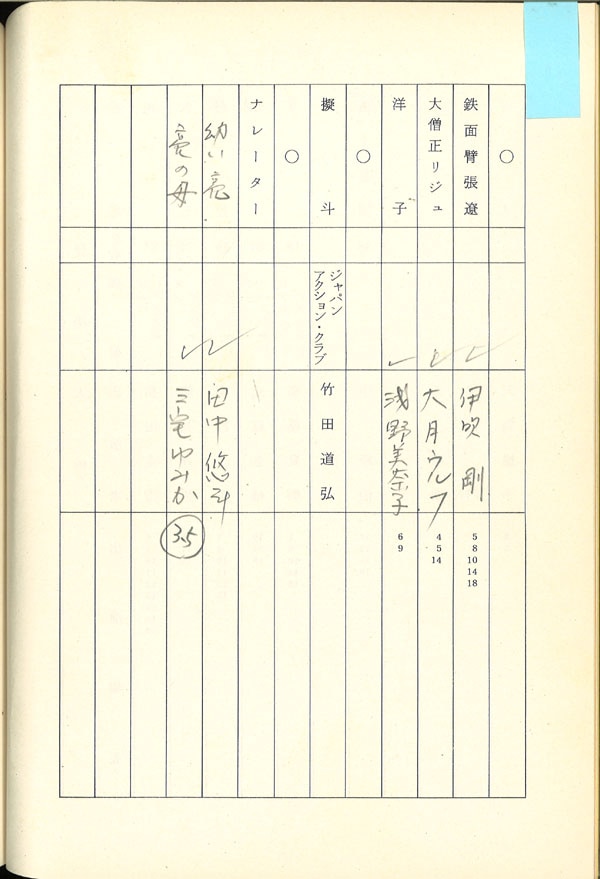 ○
鉄面臂張遼 伊吹 剛 5 8 10 14 18
大僧正リジュ 大月ウルフ 4 5 14
洋子 浅野美奈子 6 9
○
擬斗 ジャパンアクション・クラブ 竹田道弘
○
ナレーター
幼い亮 田中 悠斗
亮の母 三宅ゆみか 35